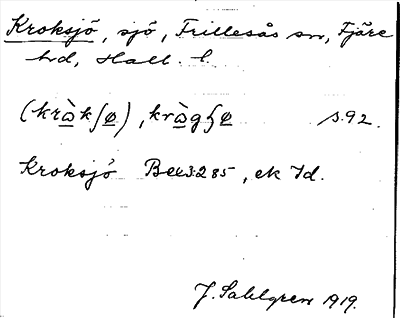 Kroksjö, sjö, Frillesås sn, Fjäre
hd, Hall. l.
(kràkʃø), kràgʃø s. 92.
Kroksjö Bek 3:285, ek Id.
J. Sahlgren 1919.